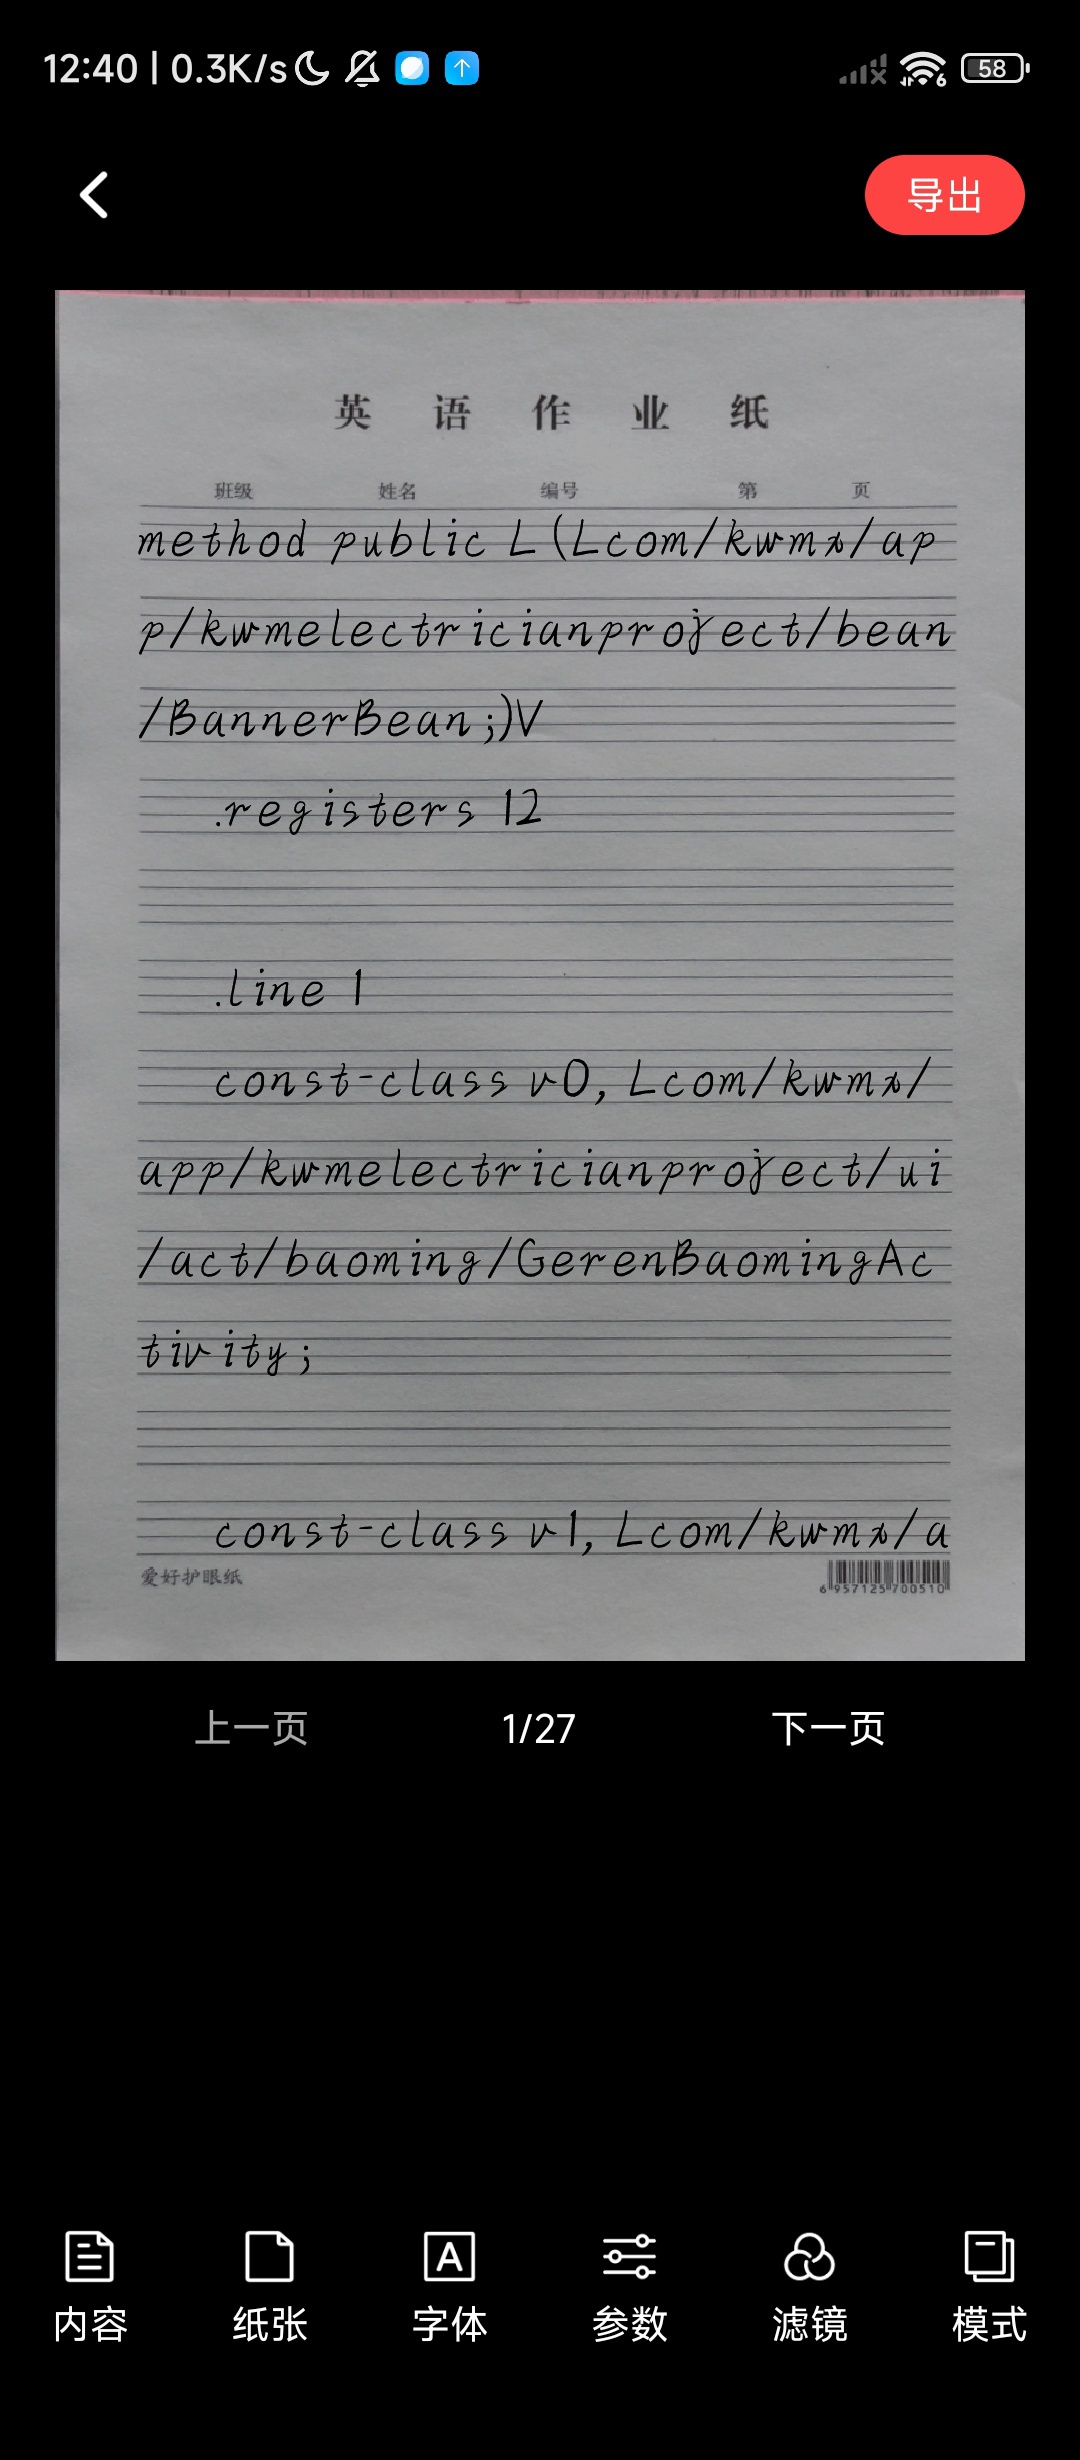 12:40 | 0.3K/s
6
58
导出
英 语 作 业 纸
班级 姓名 编号 第 页
method public L(Lcom/kwmx/ap
p/kwmelectricianproject/bean
/BannerBean;)V
.registers 12
.line 1
const-class v0, Lcom/kwmx/
app/kwmelectricianproject/ui
/act/baoming/GerenBaomingAc
tivity;
const-class v1, Lcom/kwmx/a
爱好护眼纸
6 957125 700510
上一页 1/27 下一页
A
内容 纸张 字体 参数 滤镜 模式